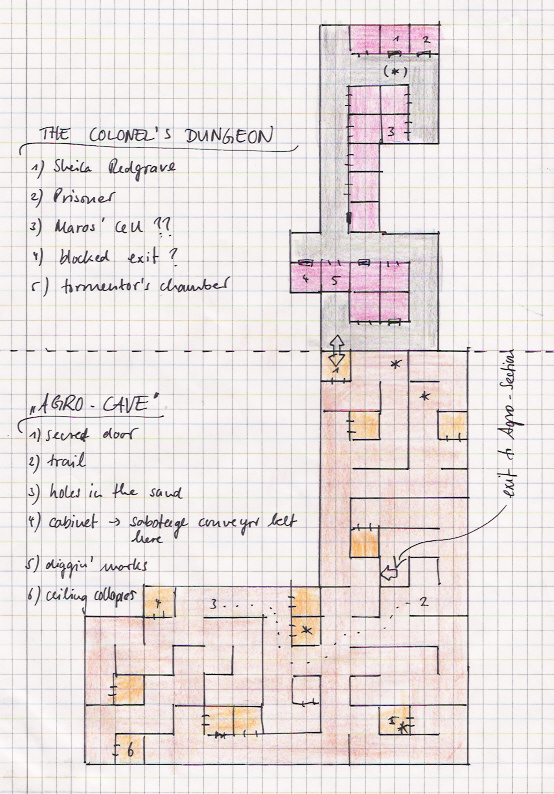 1 2
(*)
3
THE COLONEL'S DUNGEON
1) Sheila Redgrave
2) Prisoner
3) Maros' cell ??
4) blocked exit ?
5) tormentor's chamber
4 5
1
*
*
exit to Agro-Section
„AGRO-CAVE"
1) secret door
2) trail
3) holes in the sand
4) cabinet → sabotage conveyor belt
here
5) diggin' works
6) ceiling collapses
4 3 2
*
5 *
6